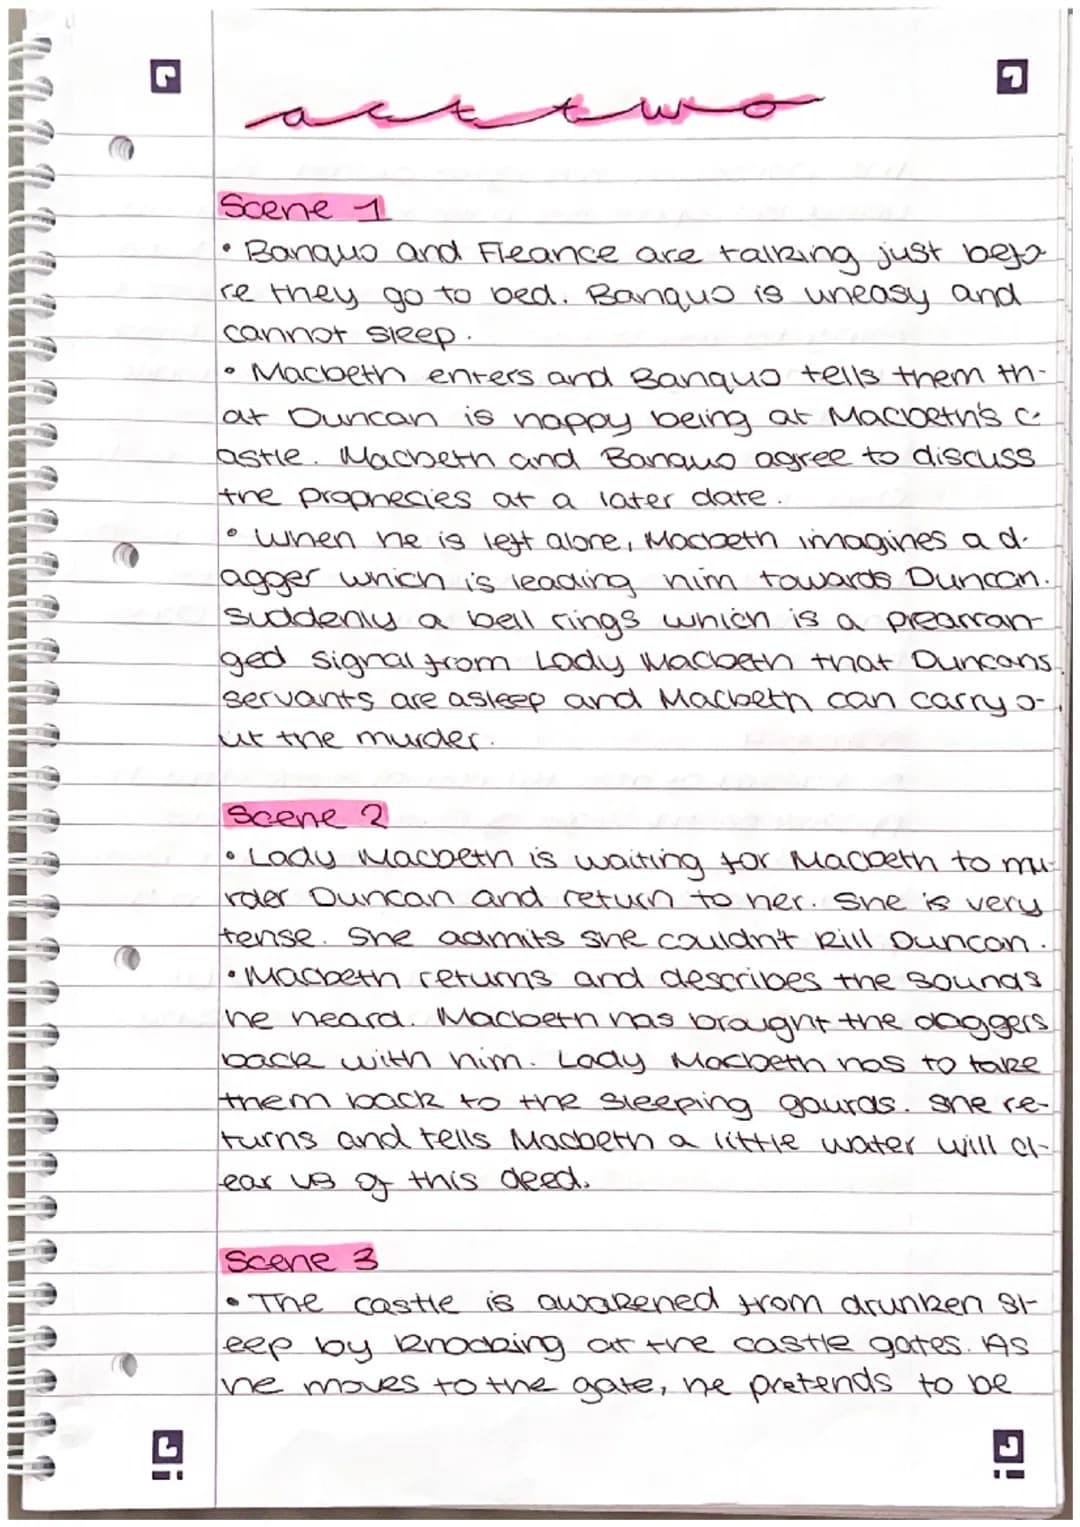 act two
Scene 1
• Banquo and Fleance are talking just befo-
re they go to bed. Banquo is uneasy and
cannot sleep.
• Macbeth enters and Banquo tells them th-
at Duncan is happy being at Macbeth's c-
astle. Macbeth and Banquo agree to discuss
the prophecies at a later date.
• When he is left alone, Macbeth imagines a d-
agger which is leading him towards Duncan.
Suddenly a bell rings which is a prearran-
ged signal from Lady Macbeth that Duncans
servants are asleep and Macbeth can carry o-
ut the murder.
Scene 2
• Lady Macbeth is waiting for Macbeth to mu-
rder Duncan and return to her. She is very
tense. She admits she couldn't kill Duncan.
• Macbeth returns and describes the sounds
he heard. Macbeth has brought the daggers
back with him. Lady Macbeth has to take
them back to the sleeping gaurds. She re-
turns and tells Macbeth a little water will cl-
ear us of this deed.
Scene 3
• The castle is awakened from drunken sl-
eep by knocking at the castle gates. As
he moves to the gate, he pretends to be